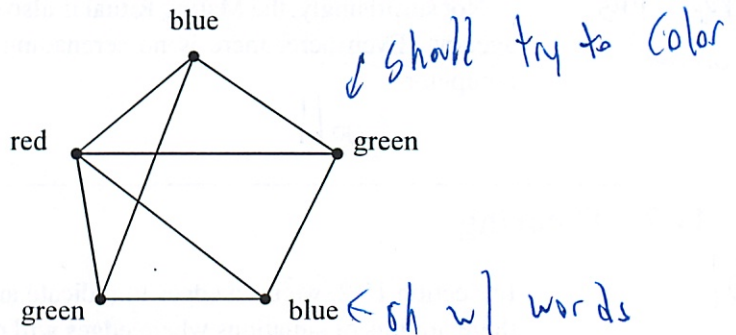 blue
should try to color
red
green
green
blue
← oh w/ words